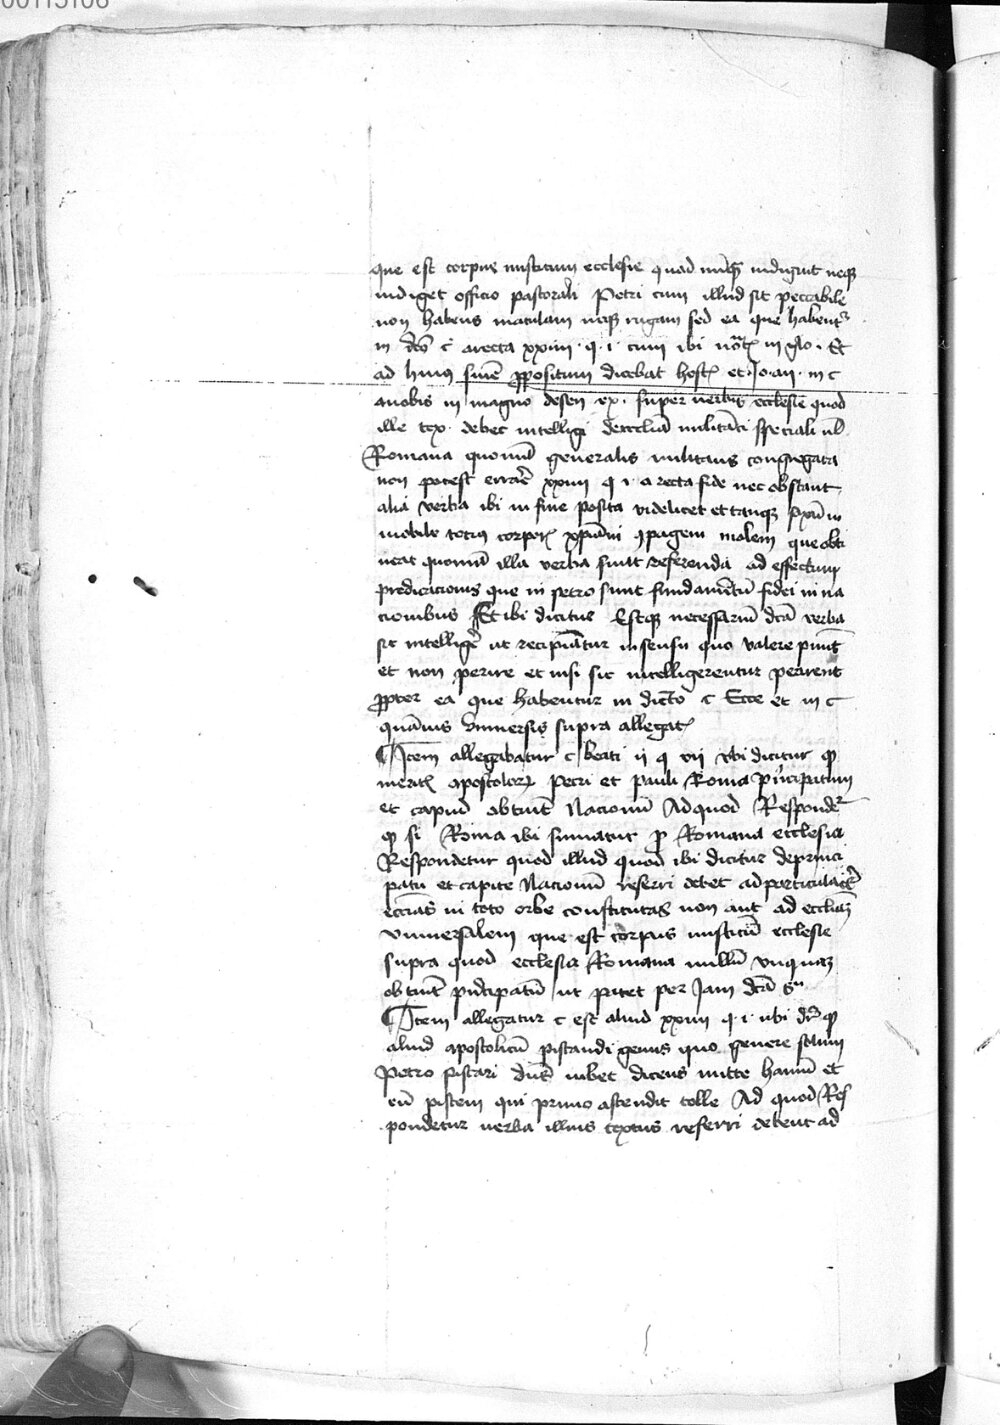 00115106
que est corpus misticum ecclesie quod nūq̄ indiguit neq
indiget officio pastorali Petri cum illud sit peccabile
non habens maculam neq rugam sed ea que habent
in dco c arecta xxiiii q i cum ibi not in glo Et
ad huius finē propositum dicebat host et Jo an in c
anobis in magno de sen ex super verbis ecclesie quod
ille tex debet intelligi de ecclia militāti speciali
Romana quoniā generalis militans congregata
non potest errare xxiiii q i a recta fide nec obstant
alia verba ibi in fine posita videlicet et tanq in
mobile totius corporis xpiāni 9pagem molem que obti
neat quoniā illa verba sunt referenda ad effectum
predicacionis que in petro sunt fundamētū fidei in na
cionibus Et ibi dicitur Estq necessariū dcā verba
sic intelligē ut recipiātur in sensu quo valere
et non perire et nisi sic intelligerentur perirent
propter ea que habentur in dicto c Ecce et in c
quāuis vniuersis supra allegat
Item allegabatur c beati ii q vii vbi dicitur q
meritis apostolorum Petri et pauli Roma principatum
et capud obtinet Nacionū Ad quod Respondetur
q si Roma ibi sumatur p Romana ecclesia
Respondetur quod illud quod ibi dicitur deprinci
patu et capite Nacionū referri debet ad particulares
eccīas in toto orbe constitutas non aut ad eccliaz
vniuersalem que est corpus misticū ecclesie
supra quod ecclesia Romana nullū vnquaz
obtinet prīcipatū ut patet per Jam dcā
Item allegatur c est aliud xxiiii q i ubi dr q
aliud apostolicū piscandi genus quo genere solum
Petro piscari dn̄s iubet dicens mitte hamū et
eū piscem qui primo ascendit tolle Ad quod Res
pondetur verba illius textus referri debent ad